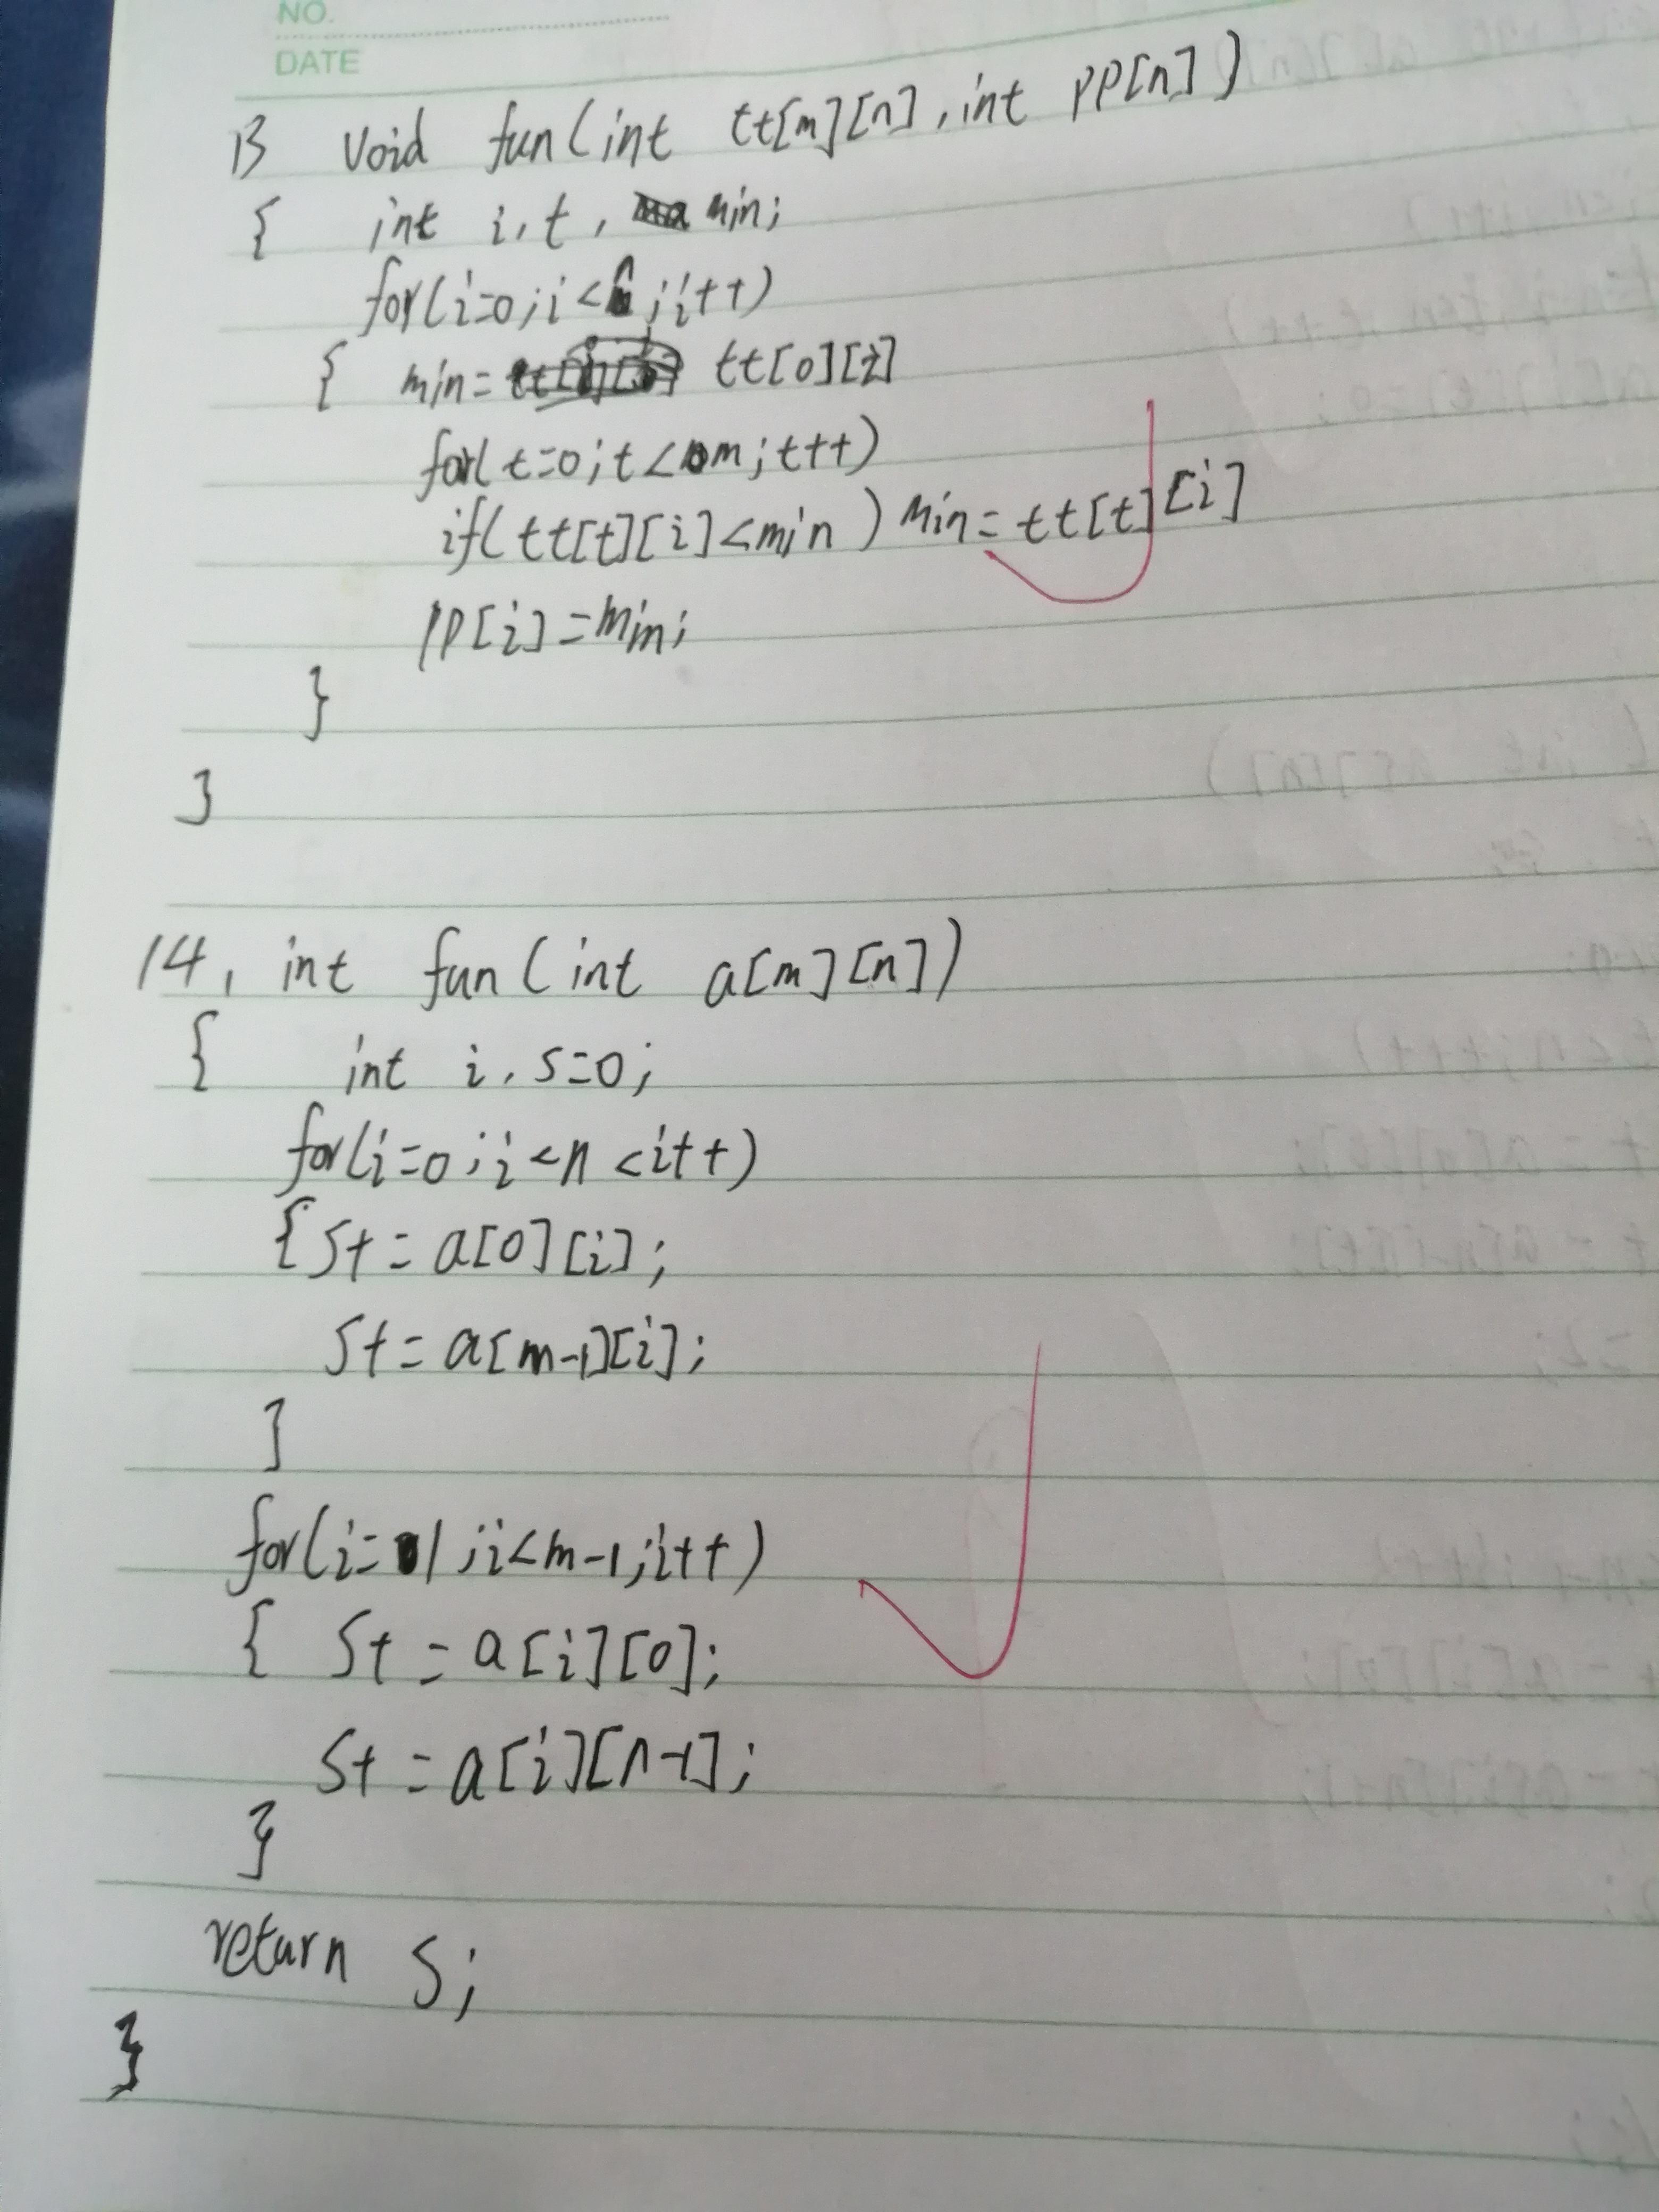 NO.
DATE
13 void fun(int tt[m][n],int pp[n])
{ int i,t, min;
for(i=0;i<n;i++)
{ min= tt[0][i]
for(t=0;t<m;t++)
if(tt[t][i]<min) min=tt[t][i]
pp[i]=min;
}
}
14, int fun(int a[m][n])
{ int i,s=0;
for(i=0;i<n<i++)
{s+=a[0][i];
s+=a[m-1][i];
}
for(i=1;i<m-1;i++)
{ s+=a[i][0];
s+=a[i][n-1];
}
return s;
}